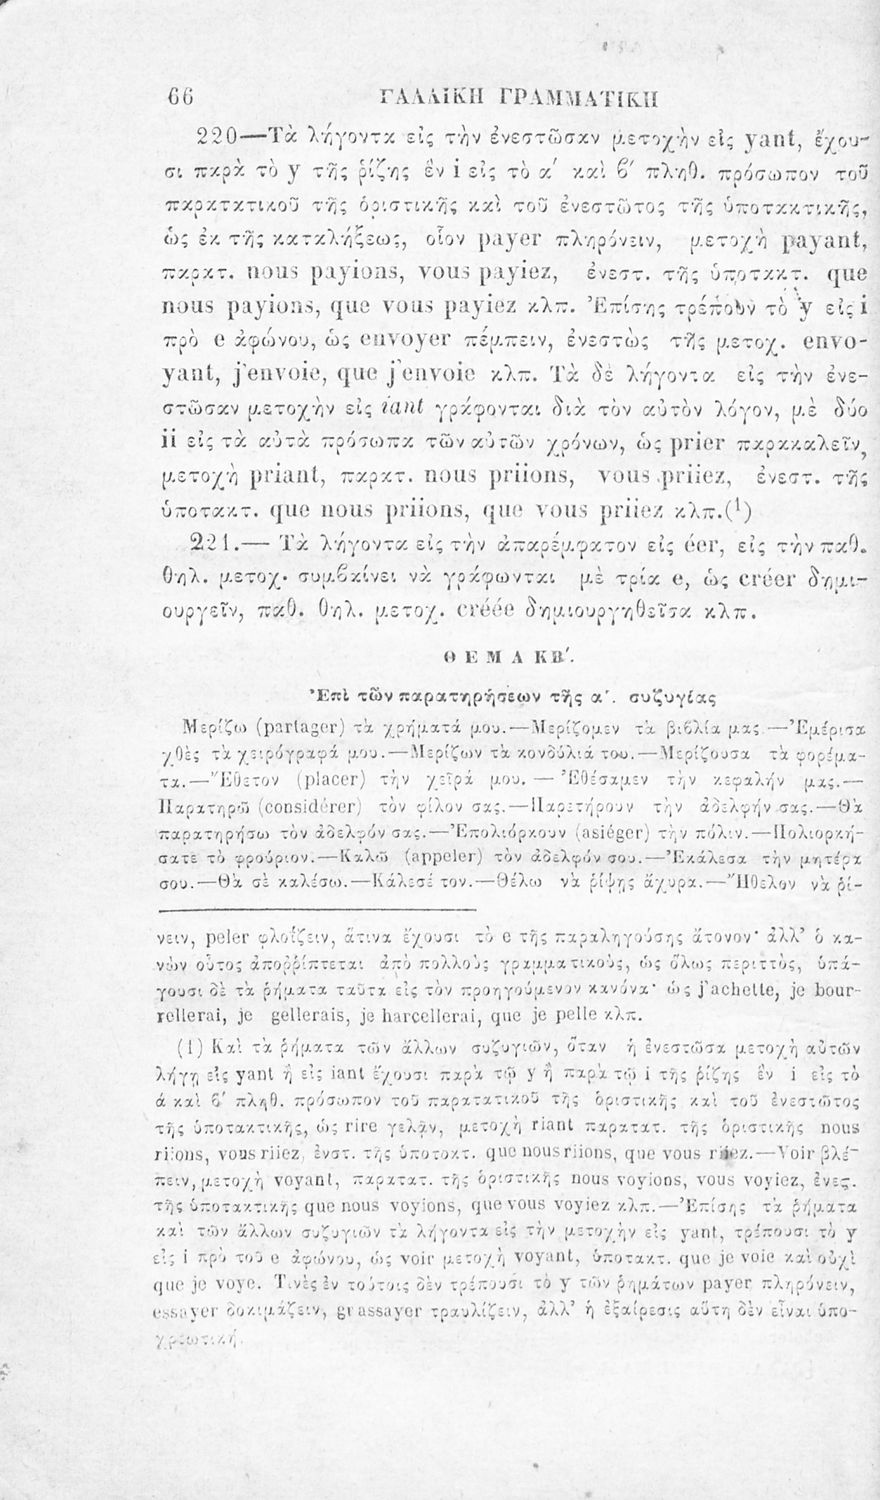 66 ΓΑΛΛΙΚΗ ΓΡΑΜΜΑΤΙΚΗ
220—Τὰ λήγοντα εἰς τὴν ἐνεστῶσαν μετοχὴν εἰς yant, ἔχου-
σι παρὰ τὸ y τῆς ῥίζης ἓν i εἰς τὸ α' καὶ β' πληθ. πρόσωπον τοῦ
παρατατικοῦ τῆς ὁριστικῆς καὶ τοῦ ἐνεστῶτος τῆς ὑποτακτικῆς,
ὡς ἐκ τῆς καταλήξεως, οἷον payer πληρόνειν, μετοχὴ payant,
παρατ. nous payions, vous payiez, ἐνεστ. τῆς ὑποτακτ. que
nous payions, que vous payiez κλπ. Ἐπίσης τρέπουν τὸ y εἰς i
πρὸ e ἀφώνου, ὡς envoyer πέμπειν, ἐνεστὼς τῆς μετοχ. envo-
yant, j'envoie, que j'envoie κλπ. Τὰ δὲ λήγοντα εἰς τὴν ἐνε-
στῶσαν μετοχὴν εἰς iant γράφονται διὰ τὸν αὐτὸν λόγον, μὲ δύο
ii εἰς τὰ αὐτὰ πρόσωπα τῶν αὐτῶν χρόνων, ὡς prier παρακαλεῖν,
μετοχὴ priant, παρατ. nous priions, vous priiez, ἐνεστ. τῆς
ὑποτακτ. que nous priions, que vous priiez κλπ.(1)
221.— Τὰ λήγοντα εἰς τὴν ἀπαρέμφατον εἰς éer, εἰς τὴν παθ.
θηλ. μετοχ. συμβαίνει νὰ γράφωνται μὲ τρία e, ὡς créer δημι-
ουργεῖν, παθ. θηλ. μετοχ. créée δημιουργηθεῖσα κλπ.
ΘΕΜΑ ΚΒ'.
Ἐπὶ τῶν παρατηρήσεων τῆς α'. συζυγίας
Μερίζω (partager) τὰ χρήματά μου.—Μερίζομεν τὰ βιβλία μας.—Ἐμέρισα
χθὲς τὰ χειρόγραφά μου.—Μερίζων τὰ κονδύλιά του.—Μερίζουσα τὰ φορέμα-
τα.—Ἔθετον (placer) τὴν χεῖρά μου.—Ἐθέσαμεν τὴν κεφαλήν μας.—
Παρατηρῶ (considérer) τὸν φίλον σας.—Παρετήρουν τὴν ἀδελφήν σας.—Θὰ
παρατηρήσω τὸν ἀδελφόν σας.—Ἐπολιόρκουν (asiéger) τὴν πόλιν.—Πολιορκή-
σατε τὸ φρούριον.—Καλῶ (appeler) τὸν ἀδελφόν σου.—Ἐκάλεσα τὴν μητέρα
σου.—Θὰ σὲ καλέσω.—Κάλεσέ τον.—Θέλω νὰ ῥίψῃς ἄχυρα.—Ἤθελον νὰ ῥί-
νειν, peler φλοΐζειν, ἅτινα ἔχουσι τὸ e τῆς παραληγούσης ἄτονον· ἀλλ' ὁ κα-
νὼν οὗτος ἀποῤῥίπτεται ἀπὸ πολλοὺς γραμματικοὺς, ὡς ὅλως περιττὸς, ὑπά-
γουσι δὲ τὰ ῥήματα ταῦτα εἰς τὸν προηγούμενον κανόνα· ὡς j'achette, je bour-
rellerai, je gellerais, je harcellerai, que je pelle κλπ.
(1) Καὶ τὰ ῥήματα τῶν ἄλλων συζυγιῶν, ὅταν ἡ ἐνεστῶσα μετοχὴ αὐτῶν
λήγῃ εἰς yant ἢ εἰς iant ἔχουσι παρὰ τῷ y ἢ παρὰ τῷ i τῆς ῥίζης ἓν i εἰς τὸ
ά καὶ β' πληθ. πρόσωπον τοῦ παρατατικοῦ τῆς ὁριστικῆς καὶ τοῦ ἐνεστῶτος
τῆς ὑποτακτικῆς, ὡς rire γελᾷν, μετοχὴ riant παρατατ. τῆς ὁριστικῆς nous
riions, vous riiez, ἐνστ. τῆς ὑποτακτ. que nous riions, que vous riiez.—Voir βλέ-
πειν, μετοχὴ voyant, παρατατ. τῆς ὁριστικῆς nous voyions, vous voyiez, ἐνες.
τῆς ὑποτακτικῆς que nous voyions, que vous voyiez κλπ.—Ἐπίσης τὰ ῥήματα
καὶ τῶν ἄλλων συζυγιῶν τὰ λήγοντα εἰς τὴν μετοχὴν εἰς yant, τρέπουσι τὸ y
εἰς i πρὸ τοῦ e ἀφώνου, ὡς voir μετοχὴ voyant, ὑποτακτ. que je voie καὶ οὐχὶ
que je voye. Τινὲς ἐν τούτοις δὲν τρέπουσι τὸ y τῶν ῥημάτων payer πληρόνειν,
essayer δοκιμάζειν, grassayer τραυλίζειν, ἀλλ' ἡ ἐξαίρεσις αὕτη δὲν εἶναι ὑπο-
χρεωτική.